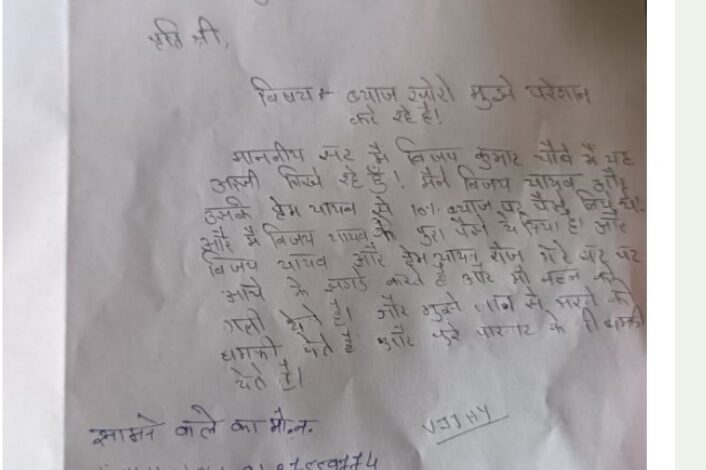 प्रति श्री,
विषय:- ब्याज खोरो मुझे परेशान
कर रहे है!
माननीय सर मै विजय कुमार चौबे मै यह
अर्जी लिख रहे हूँ! मैने विजय यादव और
उसकी हेम यादव से 10% ब्याज पर पैसे लिये थे!
और मै विजय यादव के पुरा पैसे दे दिया है और
विजय यादव और हेम यादव रोज मेरे घर पर
आये के झगडे करते है और माँ बहन की
गाली देते है। और मुझे जान से मारने की
धमकी देते है और पुरे परिवार के भी धमकी
देते है।
सामने वाले का मो.न.
VIJAY